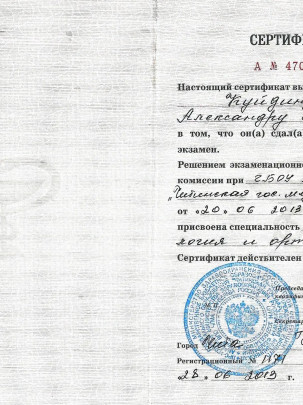 СЕРТИФ
А № 470
Настоящий сертификат вы
Куйдин
Александру
в том, что он(а) сдал(а
экзамен.
Решением экзаменационно
комиссии при ГБОУ
"Читинская гос. ме
от «20» 06 2013
присвоена специальность
логия и орт
Сертификат действителен
Председа
квалифик
Секретар
Город Чита
Регистрационный №
«28» 06 2013 г.